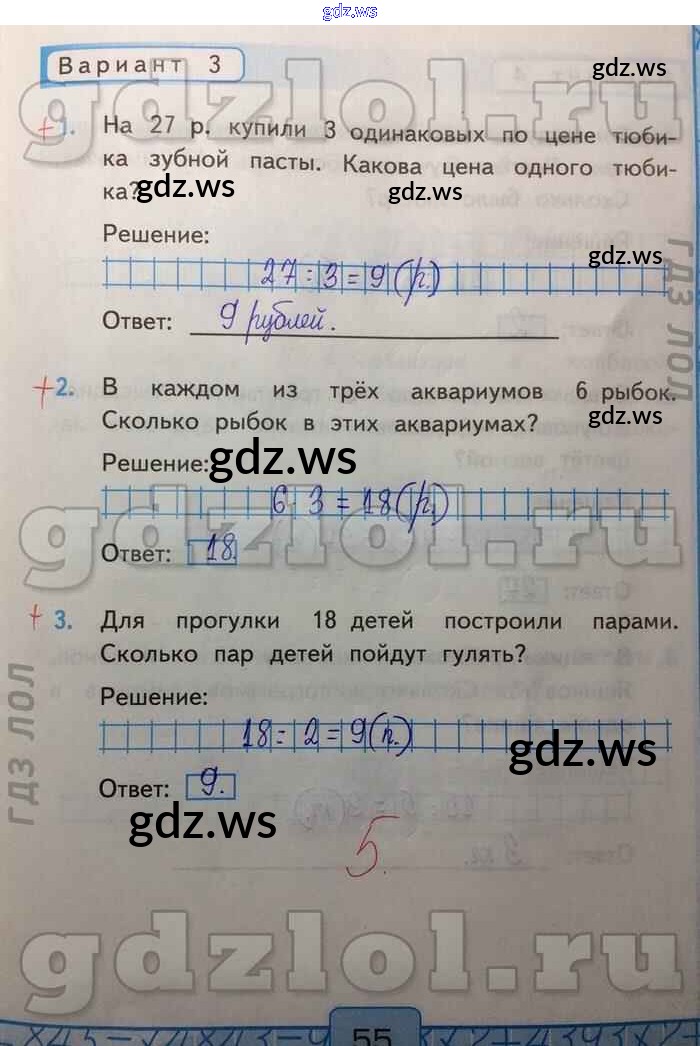 gdz.ws
Вариант 3
gdz.ws
gdzlol.ru
+ 1. На 27 р. купили 3 одинаковых по цене тюби-
ка зубной пасты. Какова цена одного тюби-
ка?
gdz.ws
gdz.ws
Решение:
gdz.ws
27 : 3 = 9 (р.)
Ответ: 9 рублей.
ГДЗ ЛОЛ
+ 2. В каждом из трёх аквариумов 6 рыбок.
Сколько рыбок в этих аквариумах?
gdz.ws
Решение:
gdz.ws
6 3 = 18 (р.)
gdzlol.ru
Ответ: 18.
+ 3. Для прогулки 18 детей построили парами.
Сколько пар детей пойдут гулять?
Решение:
18 : 2 = 9 (п.)
gdz.ws
ГДЗ ЛОЛ
Ответ: 9.
gdz.ws
5.
gdzlol.ru
55